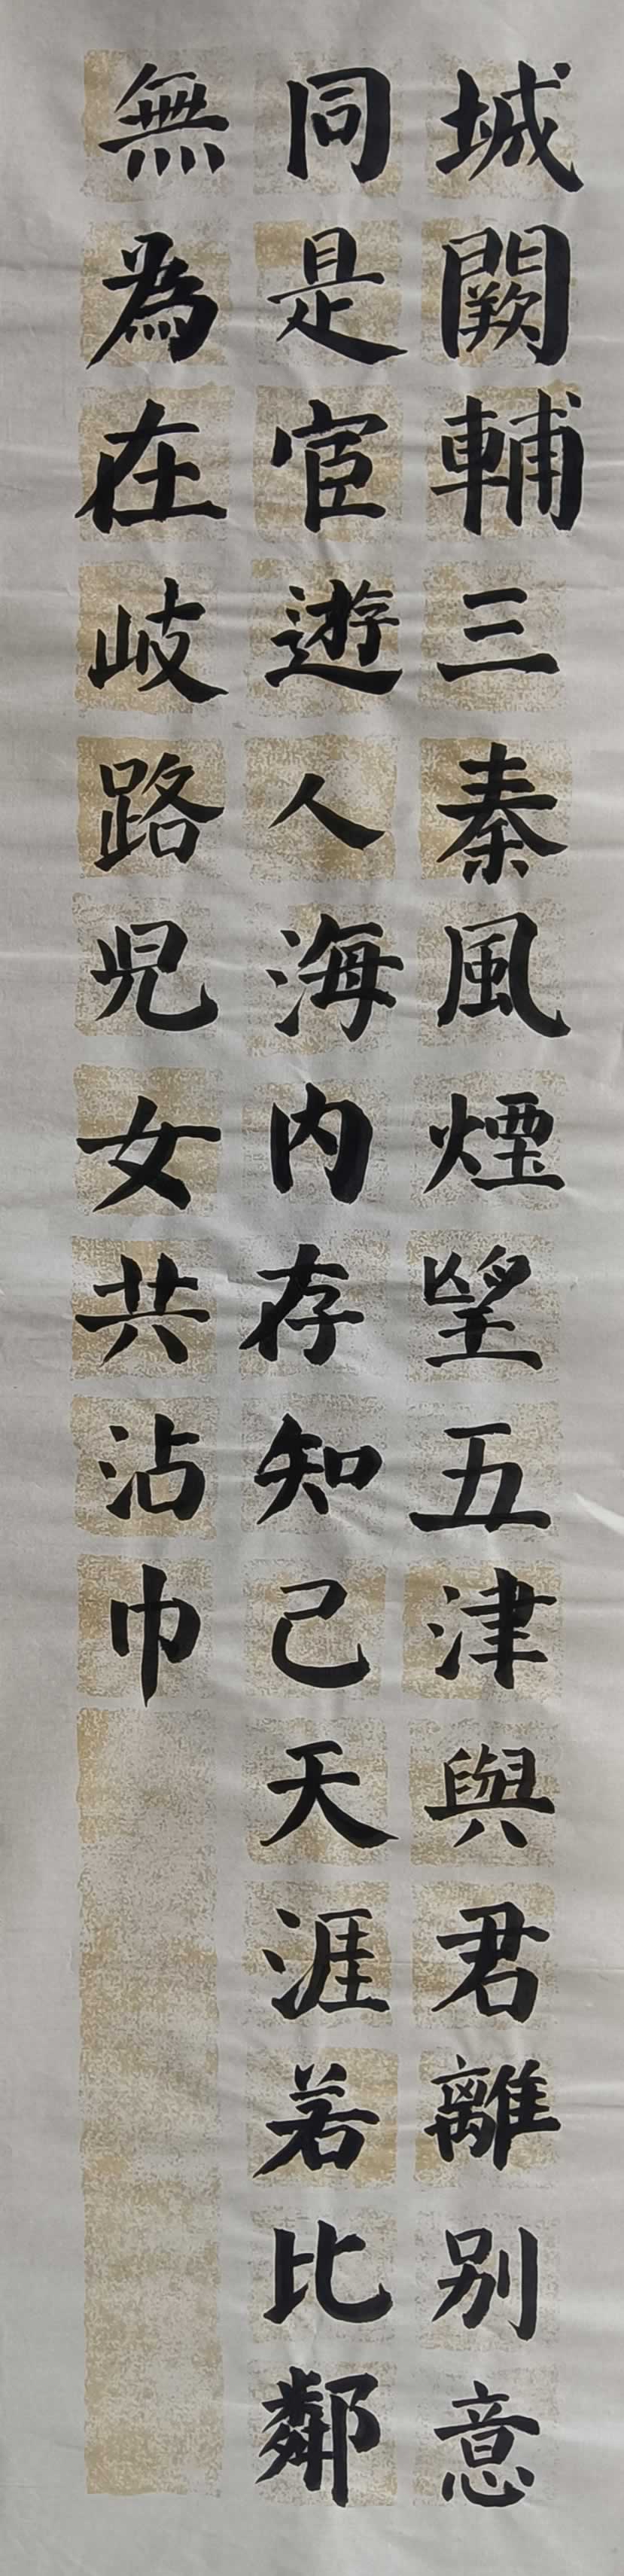 城闕輔三秦風煙望五津與君離别意
同是宦遊人海内存知己天涯若比鄰
無為在岐路児女共沾巾